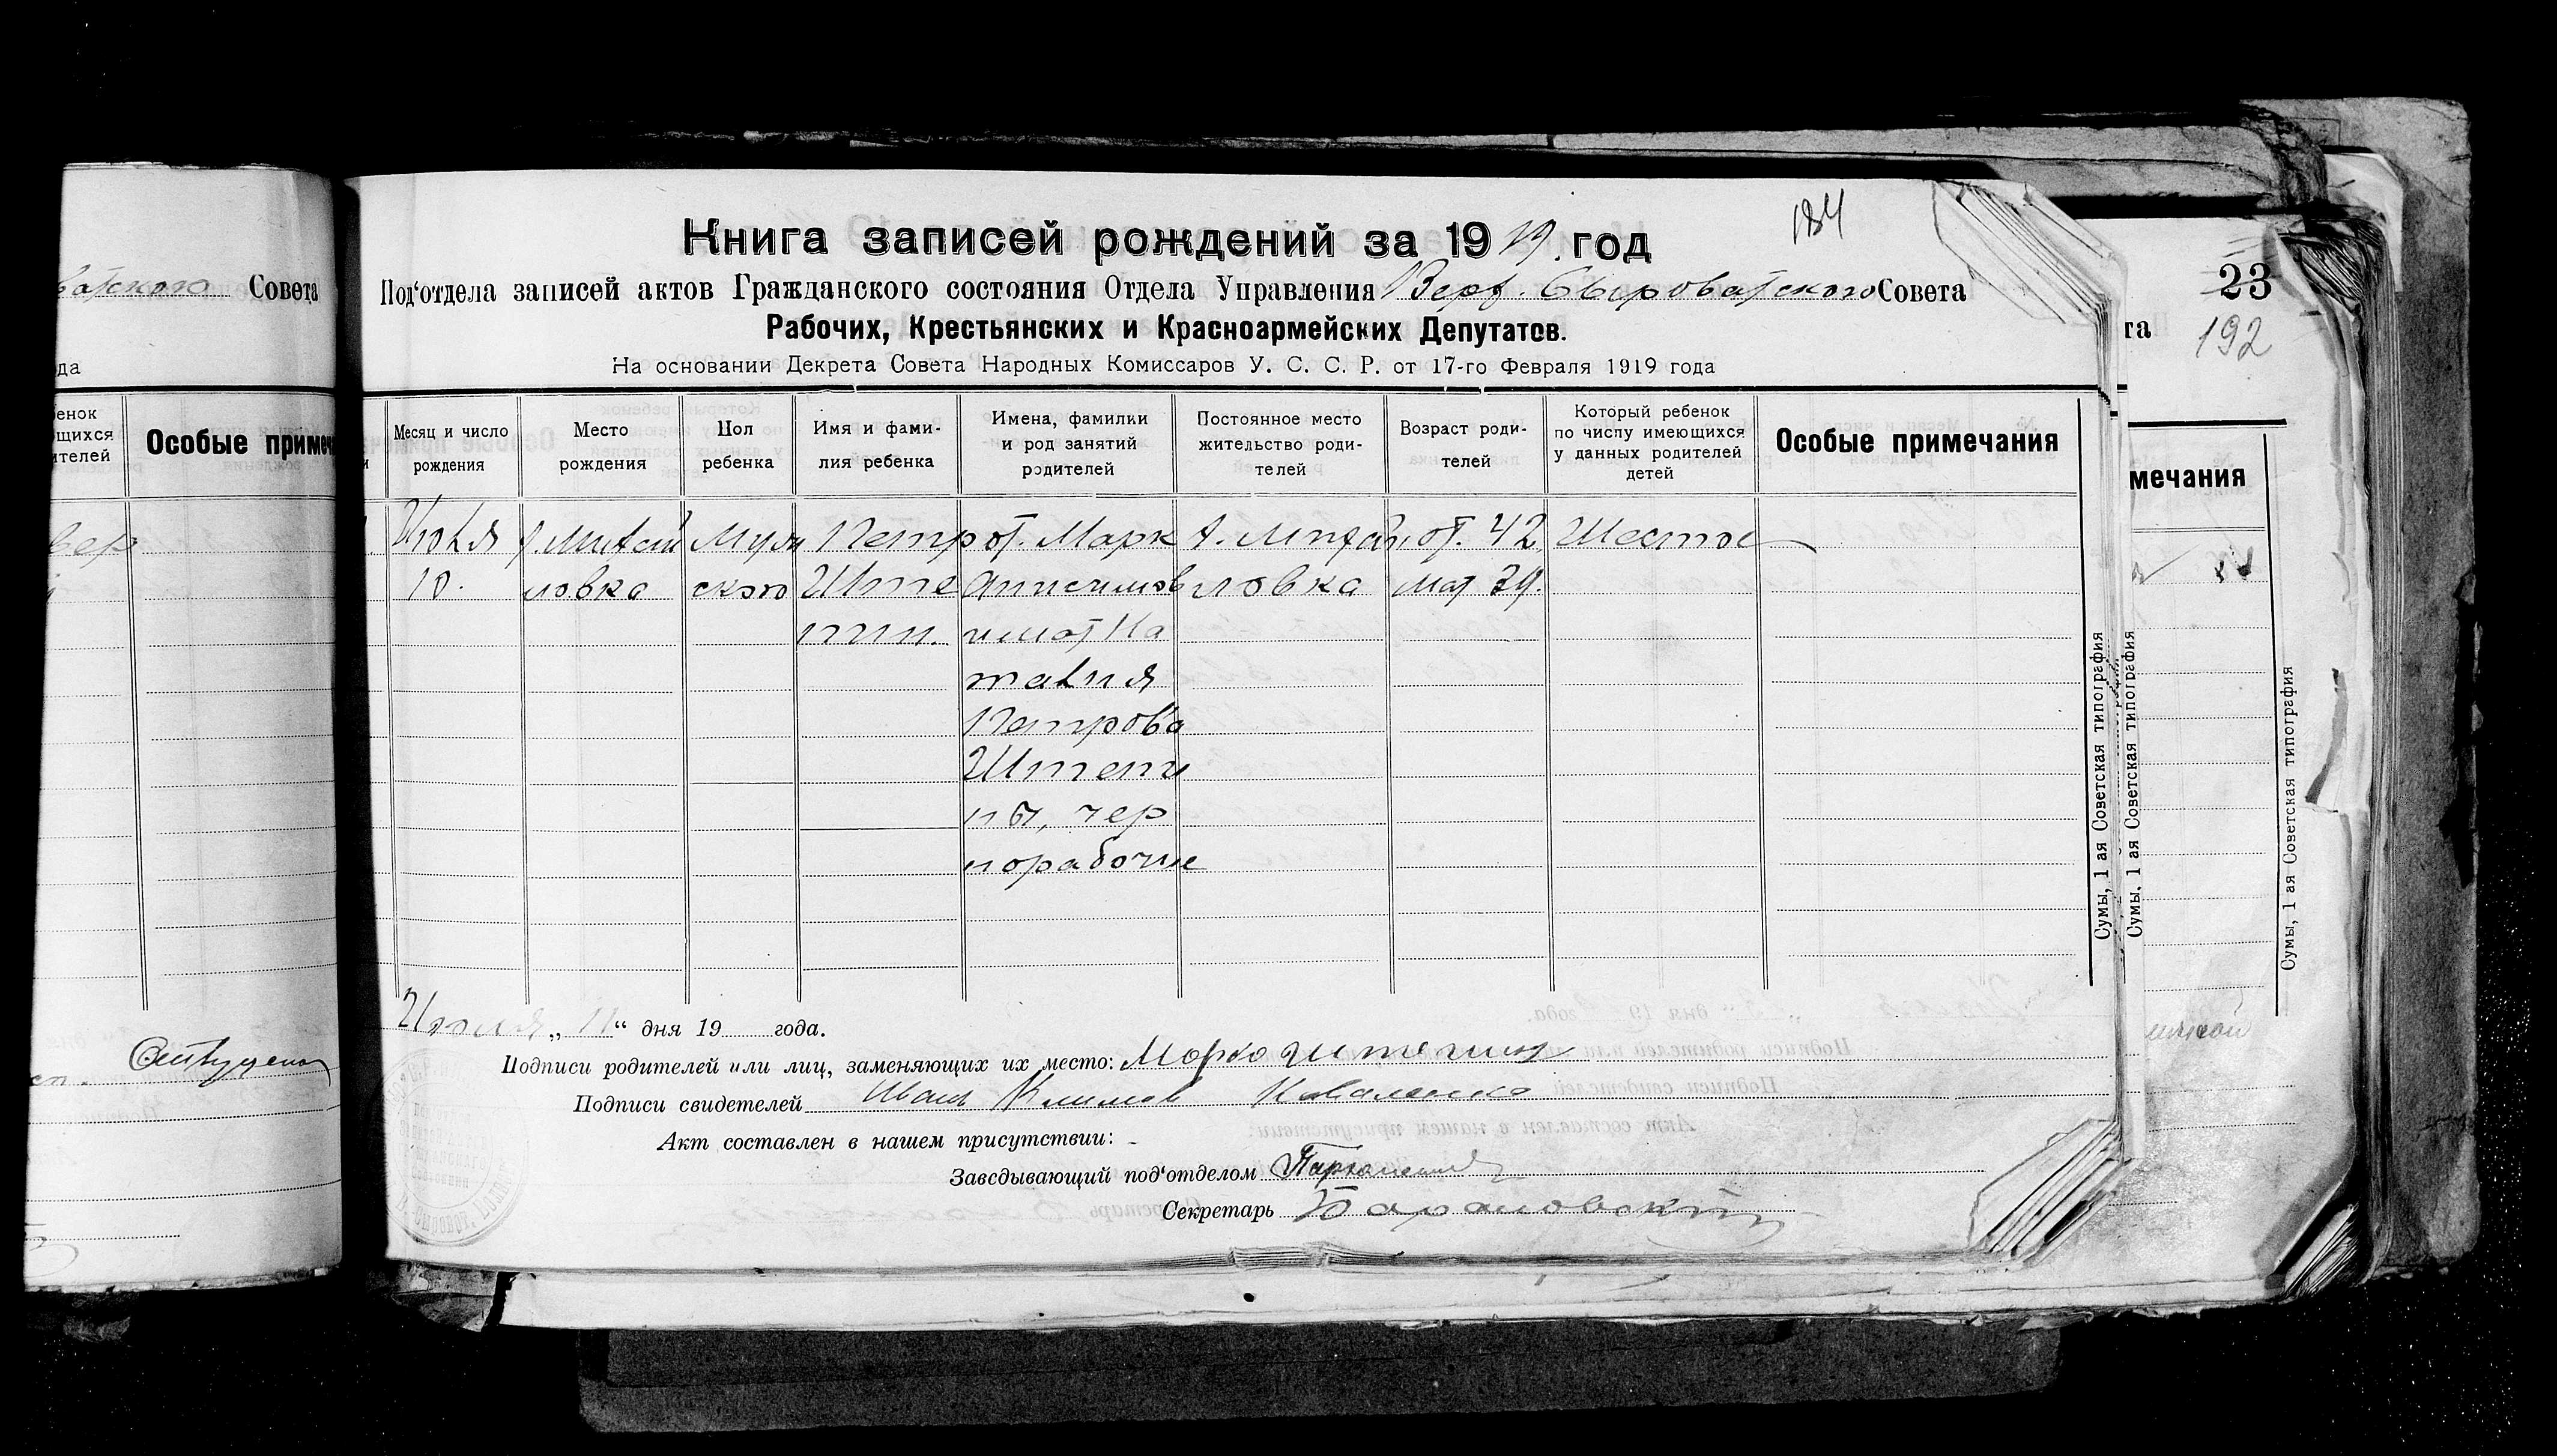 Книга записей рождений за 1919 год
184
Под‘отдела записей актов Гражданского состояния Отдела Управления Верх. Сыроватского Совета
Рабочих, Крестьянских и Красноармейских Депутатов.
На основании Декрета Совета Народных Комиссаров У. С. С. Р. от 17-го Февраля 1919 года
Месяц и число рождения
Место рождения
Пол ребенка
Имя и фами-
лия ребенка
Имена, фамилки
и род занятий
родителей
Постоянное место
жительство роди-
телей
Возраст роди-
телей
Который ребенок
по числу имеющихся
у данных родителей
детей
Особые примечания
Июля
10.
ловка
Муж
ского
Петр
Ште
пин.
от. Марк
мат На
талия
Петрова
Штепи
ны, чер
норабочие
ловка
от. 42.
мат 39.
Шестое
Июля „ 11 “ дня 19 года.
Подписи родителей или лиц, заменяющих их место: Марко Штепин
Подписи свидетелей Иван Климов Коваленко
Акт составлен в нашем присутствии:
Заведывающий под‘отделом
Секретарь Барановский
Сумы, 1 ая Советская типография
ватского Совета
да
енок
щихся
ителей
Особые примеч
вер
23
192
та
мечания
Сумы, 1 ая Советская типография
Сумы, 1 ая Советская типография